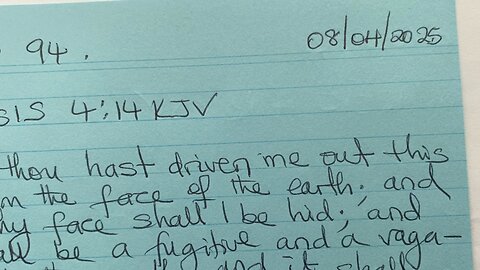 94. 08/04/2025
SIS 4:14 KJV
thou hast driven me out this
the face of the earth; and
face shall I be hid; and
be a fugitive and a vaga-
and it shall